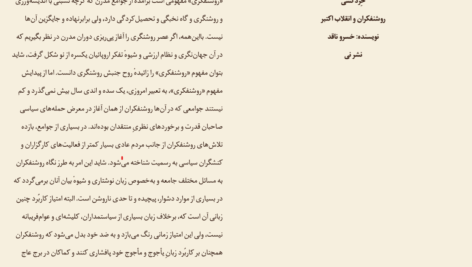 خرد کشی
روشنفکران و انقلاب اکتبر
نویسنده: خسرو ناقد
نشر نی
و روشنگری و گاه نخبگی و تحصیل‌کردگی دارد، ولی برابرنهاده و جایگزین آن‌ها
نیست. بااین‌همه، اگر عصر روشنگری را آغاز پی‌ریزی دوران مدرن در نظر بگیریم که
در آن جهان‌نگری و نظام ارزشی و شیوهٔ تفکر اروپائیان یکسره از نو شکل گرفت، شاید
بتوان مفهوم «روشنفکری» را زائیدهٔ روح جنبش روشنگری دانست. اما از پیدایش
مفهوم «روشنفکری»، به تعبیر امروزی، یک سده و اندی سال بیش نمی‌گذرد و کم
نیستند جوامعی که در آن‌ها روشنفکران از همان آغاز در معرض حمله‌های سیاسی
صاحبان قدرت و برخوردهای نظری منتقدان بوده‌اند. در بسیاری از جوامع، بازده
تلاش‌های روشنفکران از جانب مردم عادی بسیار کمتر از فعالیت‌های کارگزاران و
کنشگران سیاسی به رسمیت شناخته می‌شود. شاید این امر به طرز نگاه روشنفکران
به مسائل مختلف جامعه و به‌خصوص زبان نوشتاری و شیوهٔ بیان آنان برمی‌گردد که
در بسیاری از موارد دشوار، پیچیده و تا حدی ناروشن است. البته امتیاز کاربُرد چنین
زبانی آن است که، برخلاف زبان بسیاری از سیاستمداران، کلیشه‌ای و عوام‌فریبانه
نیست، ولی این امتیاز زمانی رنگ می‌بازد و به ضد خود بدل می‌شود که روشنفکران
همچنان بر کاربُرد زبان یأجوج و مأجوج خود پافشاری کنند و کماکان در برج عاج